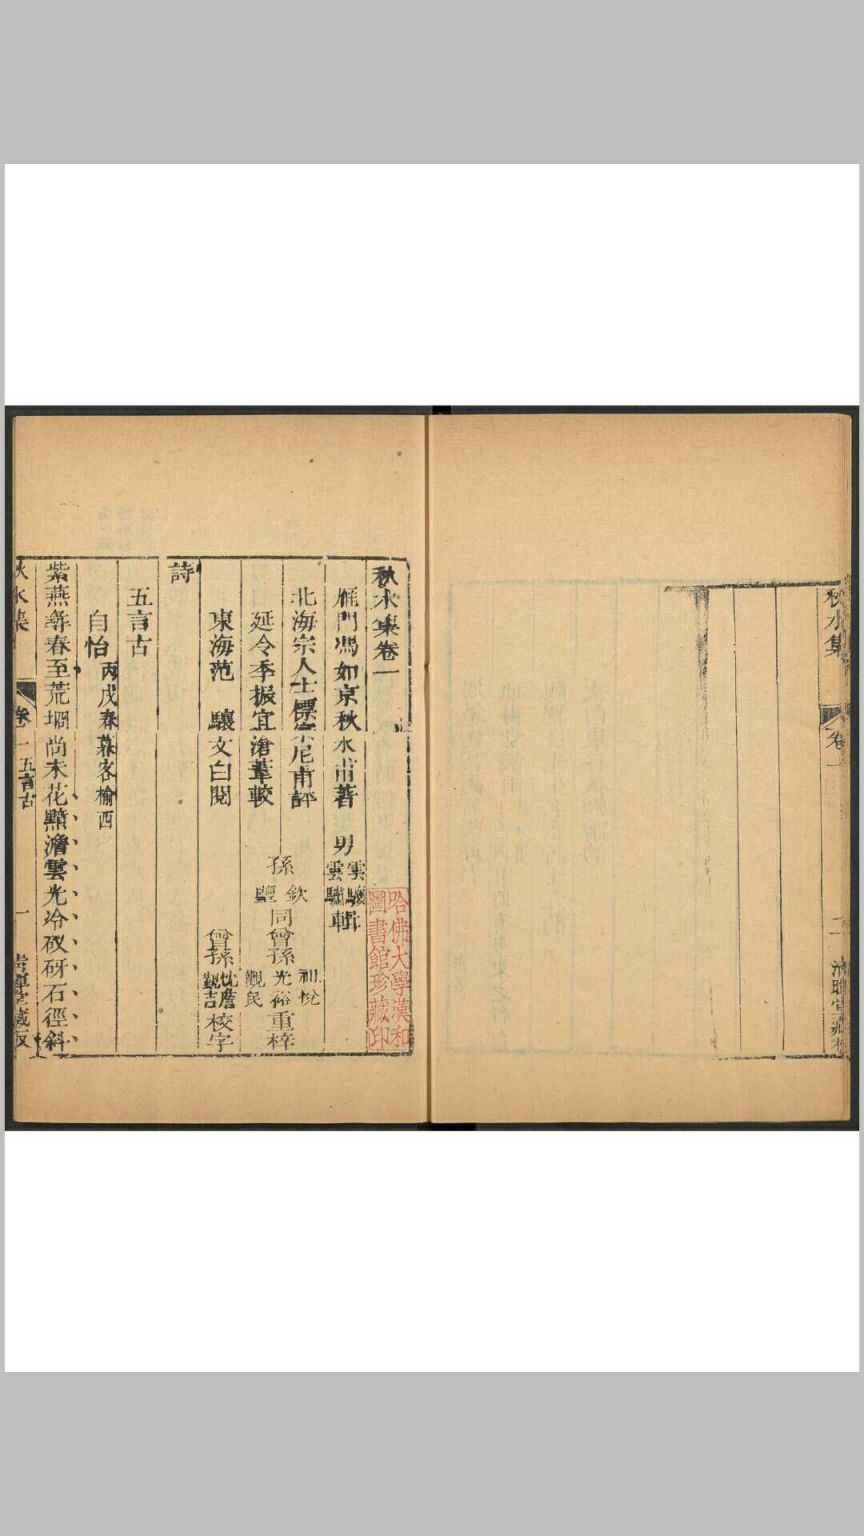 秋水集
卷
二
秋水集卷一
雁門馮如京秋水甫著 男雲驤雲驌輯
北海宗人士標宗尼甫評
延令季振宜滄葦較
東海范 驤文白閱
孫鹽欽同曾孫觀民光裕祖悅重梓
曾孫校字
哈佛大學漢和圖書館珍藏印
詩
五言古
自怡 丙戌春暮客榆西
紫燕尋春至荒堌尚未花點澹雲光冷砑石徑斜
秋水集
卷一 五言古
一